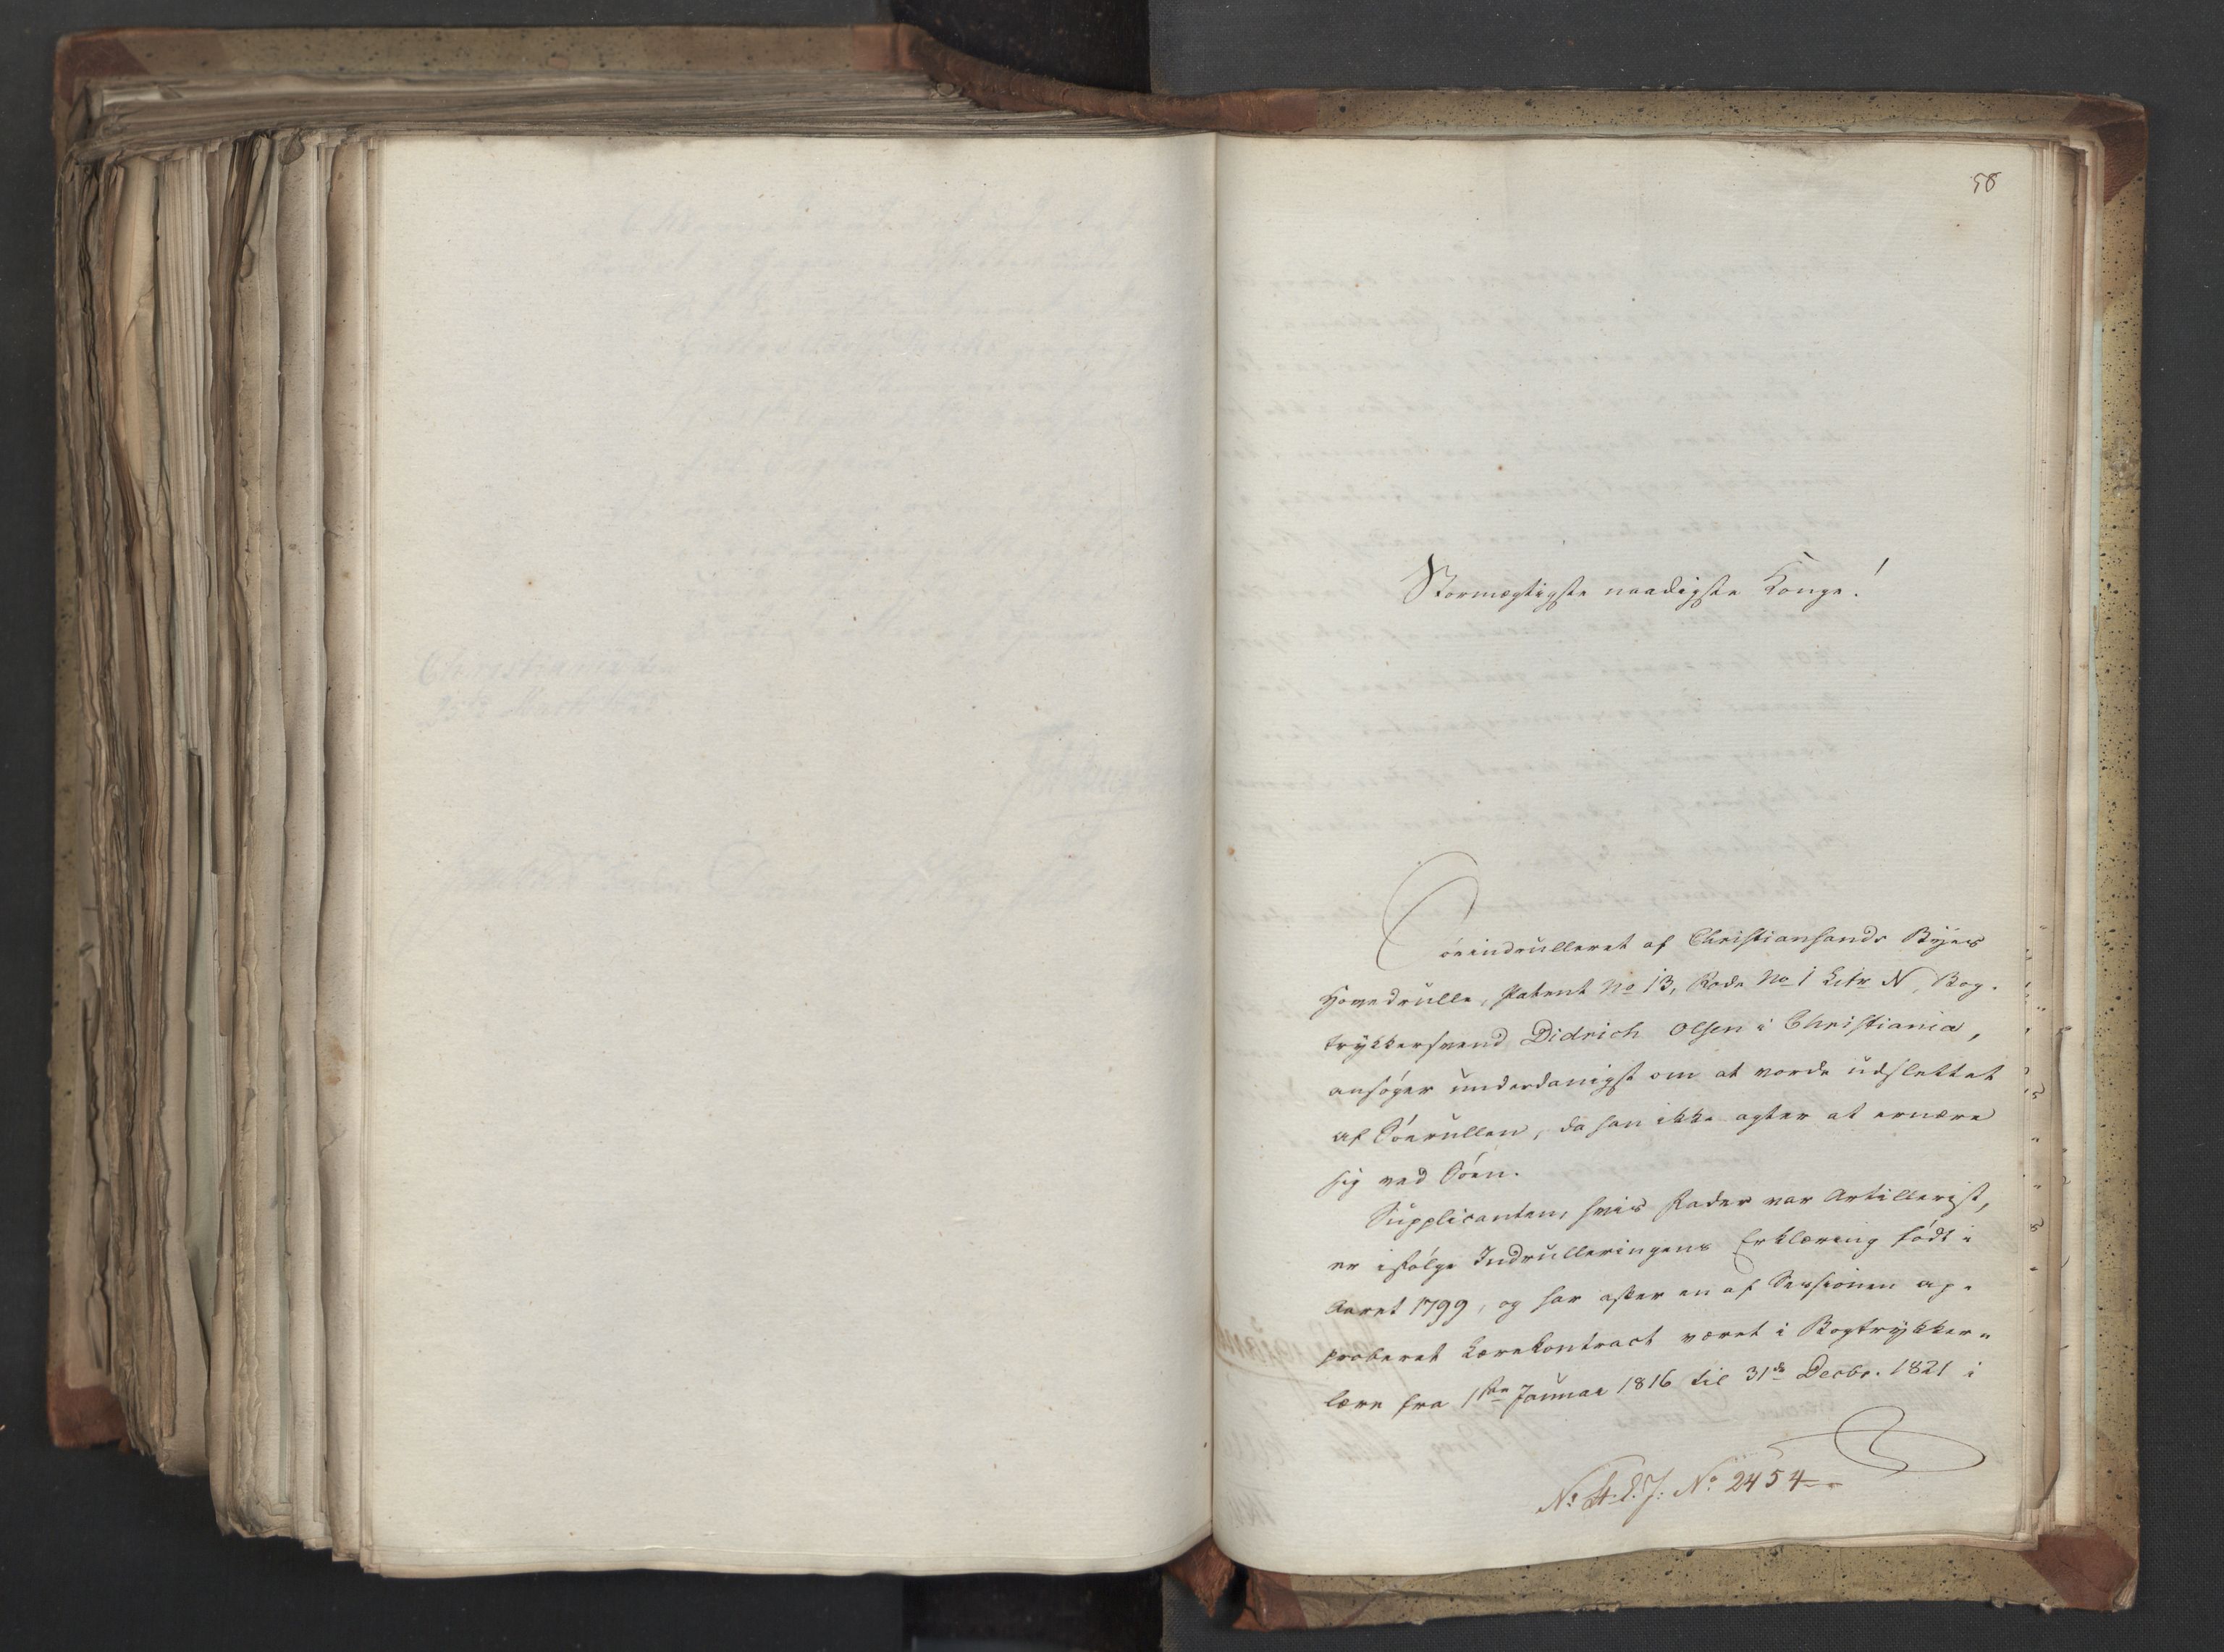 58
Stormægtigste naadigste Konge!
Søeindrulleret af Christiansands Byes
Hovedrulle, Patent No 13, Rode No 1 Litr N, Bog-
trykkersvend Didrich Olsen i Christiania,
ansøger underdanigst om at vorde udslettet
af Søerullen, da han ikke agter at ernære
sig ved Søen.
Supplicanten, hvis Fader var Artillerist,
er ifølge Indrulleringens Erklæring født i
Aaret 1799, og har efter en af Sessionen ap-
proberet Lærekontract været i Bogtrykker-
lære fra 1ste Januar 1816 til 31de Decbr. 1821 i
No 2454
Christiania den